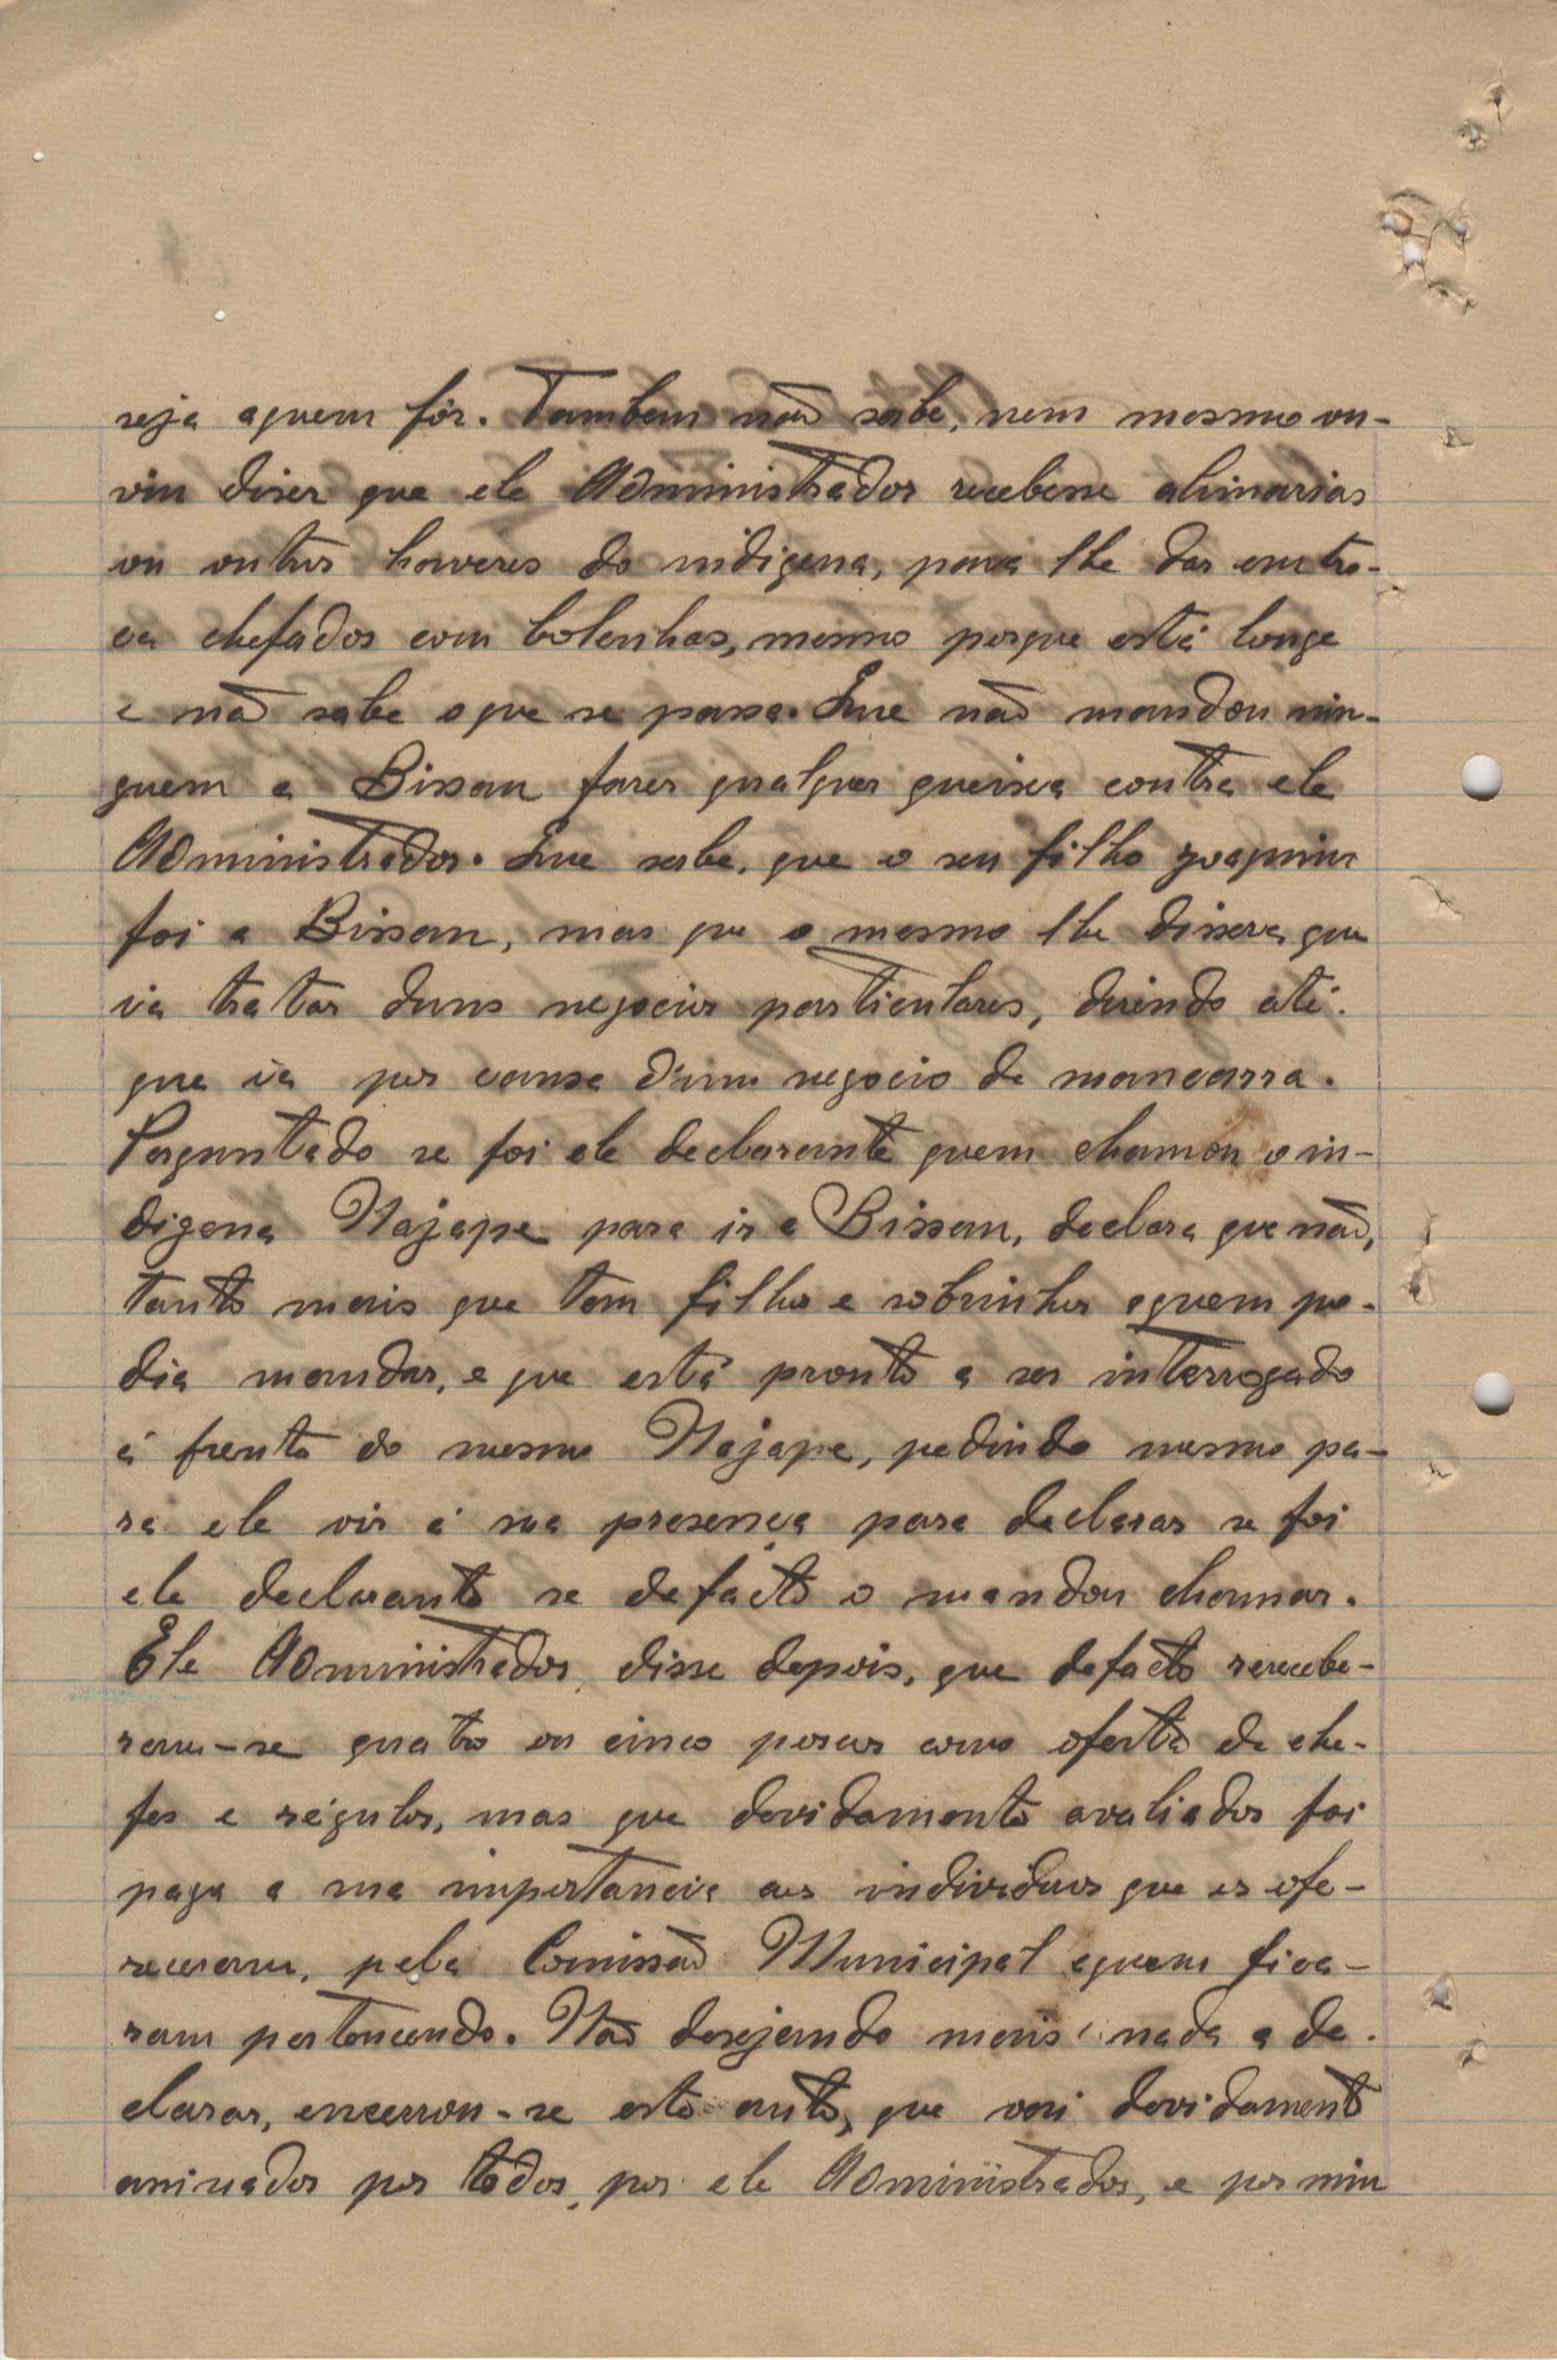 seja aquem fôr. Tambem não sabe, nem mesmo ou-
viu diser que ele Administrador recebesse alimarias
ou outros haveres do indigena, para lhe dar em tro-
ca chefados com bolenhas, mesmo porque está longe
e não sabe o que se passa. Que não mandou nin-
guem a Bissau fazer qualquer queixa contra ele
Administrador. Que sabe, que o seu filho Joaquim
foi a Bissau, mas que o mesmo lhe dissera que
ia tratar duns negocios particulares, disendo até
que ia por causa d'um negocio de mancarra.
Perguntado se foi ele declarante quem chamou o in-
digena Najape para ir a Bissau, declara que não,
tanto mais que tem filhos e sobrinhos aquem po-
dia mandar, e que está pronto a ser interrogado
á frente do mesmo Najape, pedindo mesmo pa-
ra ele vir á sua presença para declarar se foi
ele declarante se defacto o mandou chamar.
Ele Administrador, disse depois, que defacto receebe-
ram-se quatro ou cinco porcos como oferta de che-
fes e régulos, mas que devidamente avaliados foi
paga a sua importancia aos individuos que os ofe-
receram, pela Comissão Municipal aquem fica-
ram pertencendo. Não desejando mais nada a de-
clarar, encerrou-se este auto, que vai devidamente
assinados por todos, por ele Administrador, e por mim